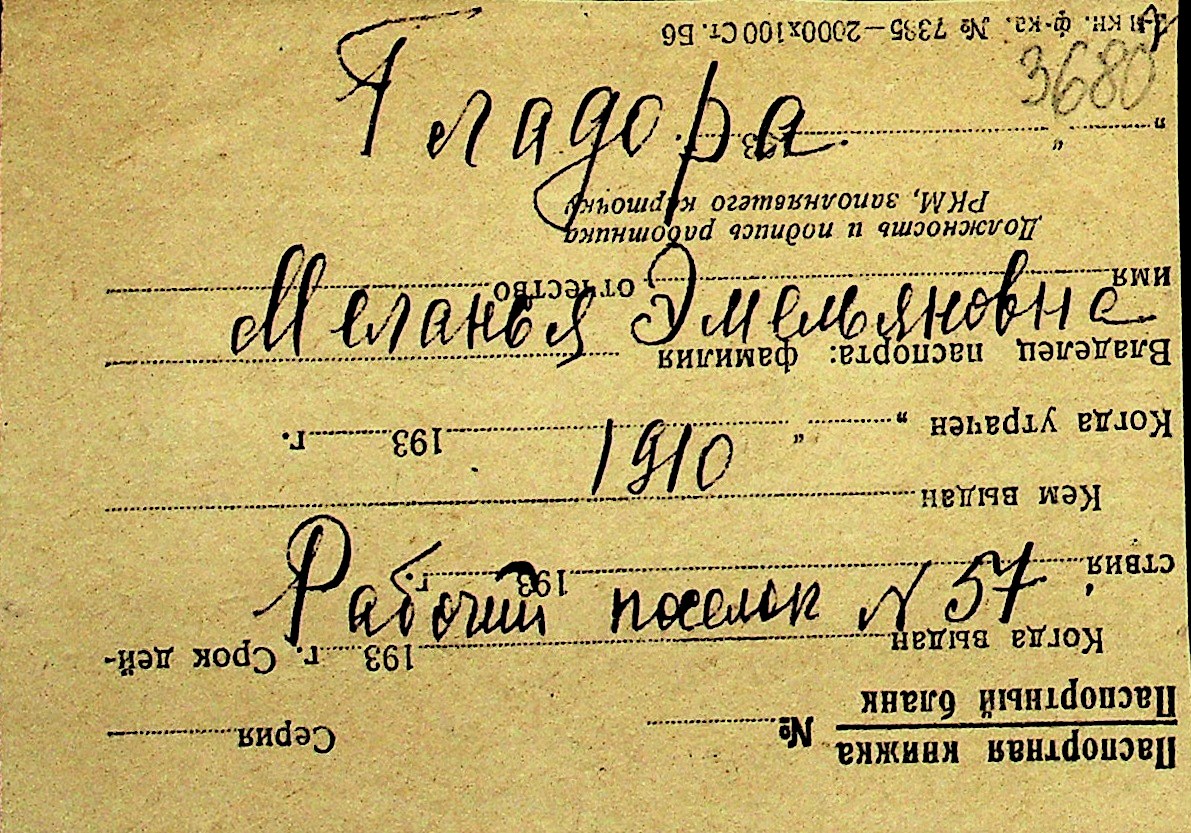 3680
Гладора
Меланья Эмельяновна
1910
Рабочий поселок N 57
Паспортная книжка
Паспортный бланк
№ Серия
Когда выдан 193 г. Срок дей-
ствия 193 г.
Кем выдан
Когда утрачен „ “ 193 г.
Владелец паспорта: фамилия
имя отчество
Должность и подпись работника
РКМ, заполнявшего карточку
„ “ 193
кн. ф-ка. № 7385—2000х100 Ст. Б6